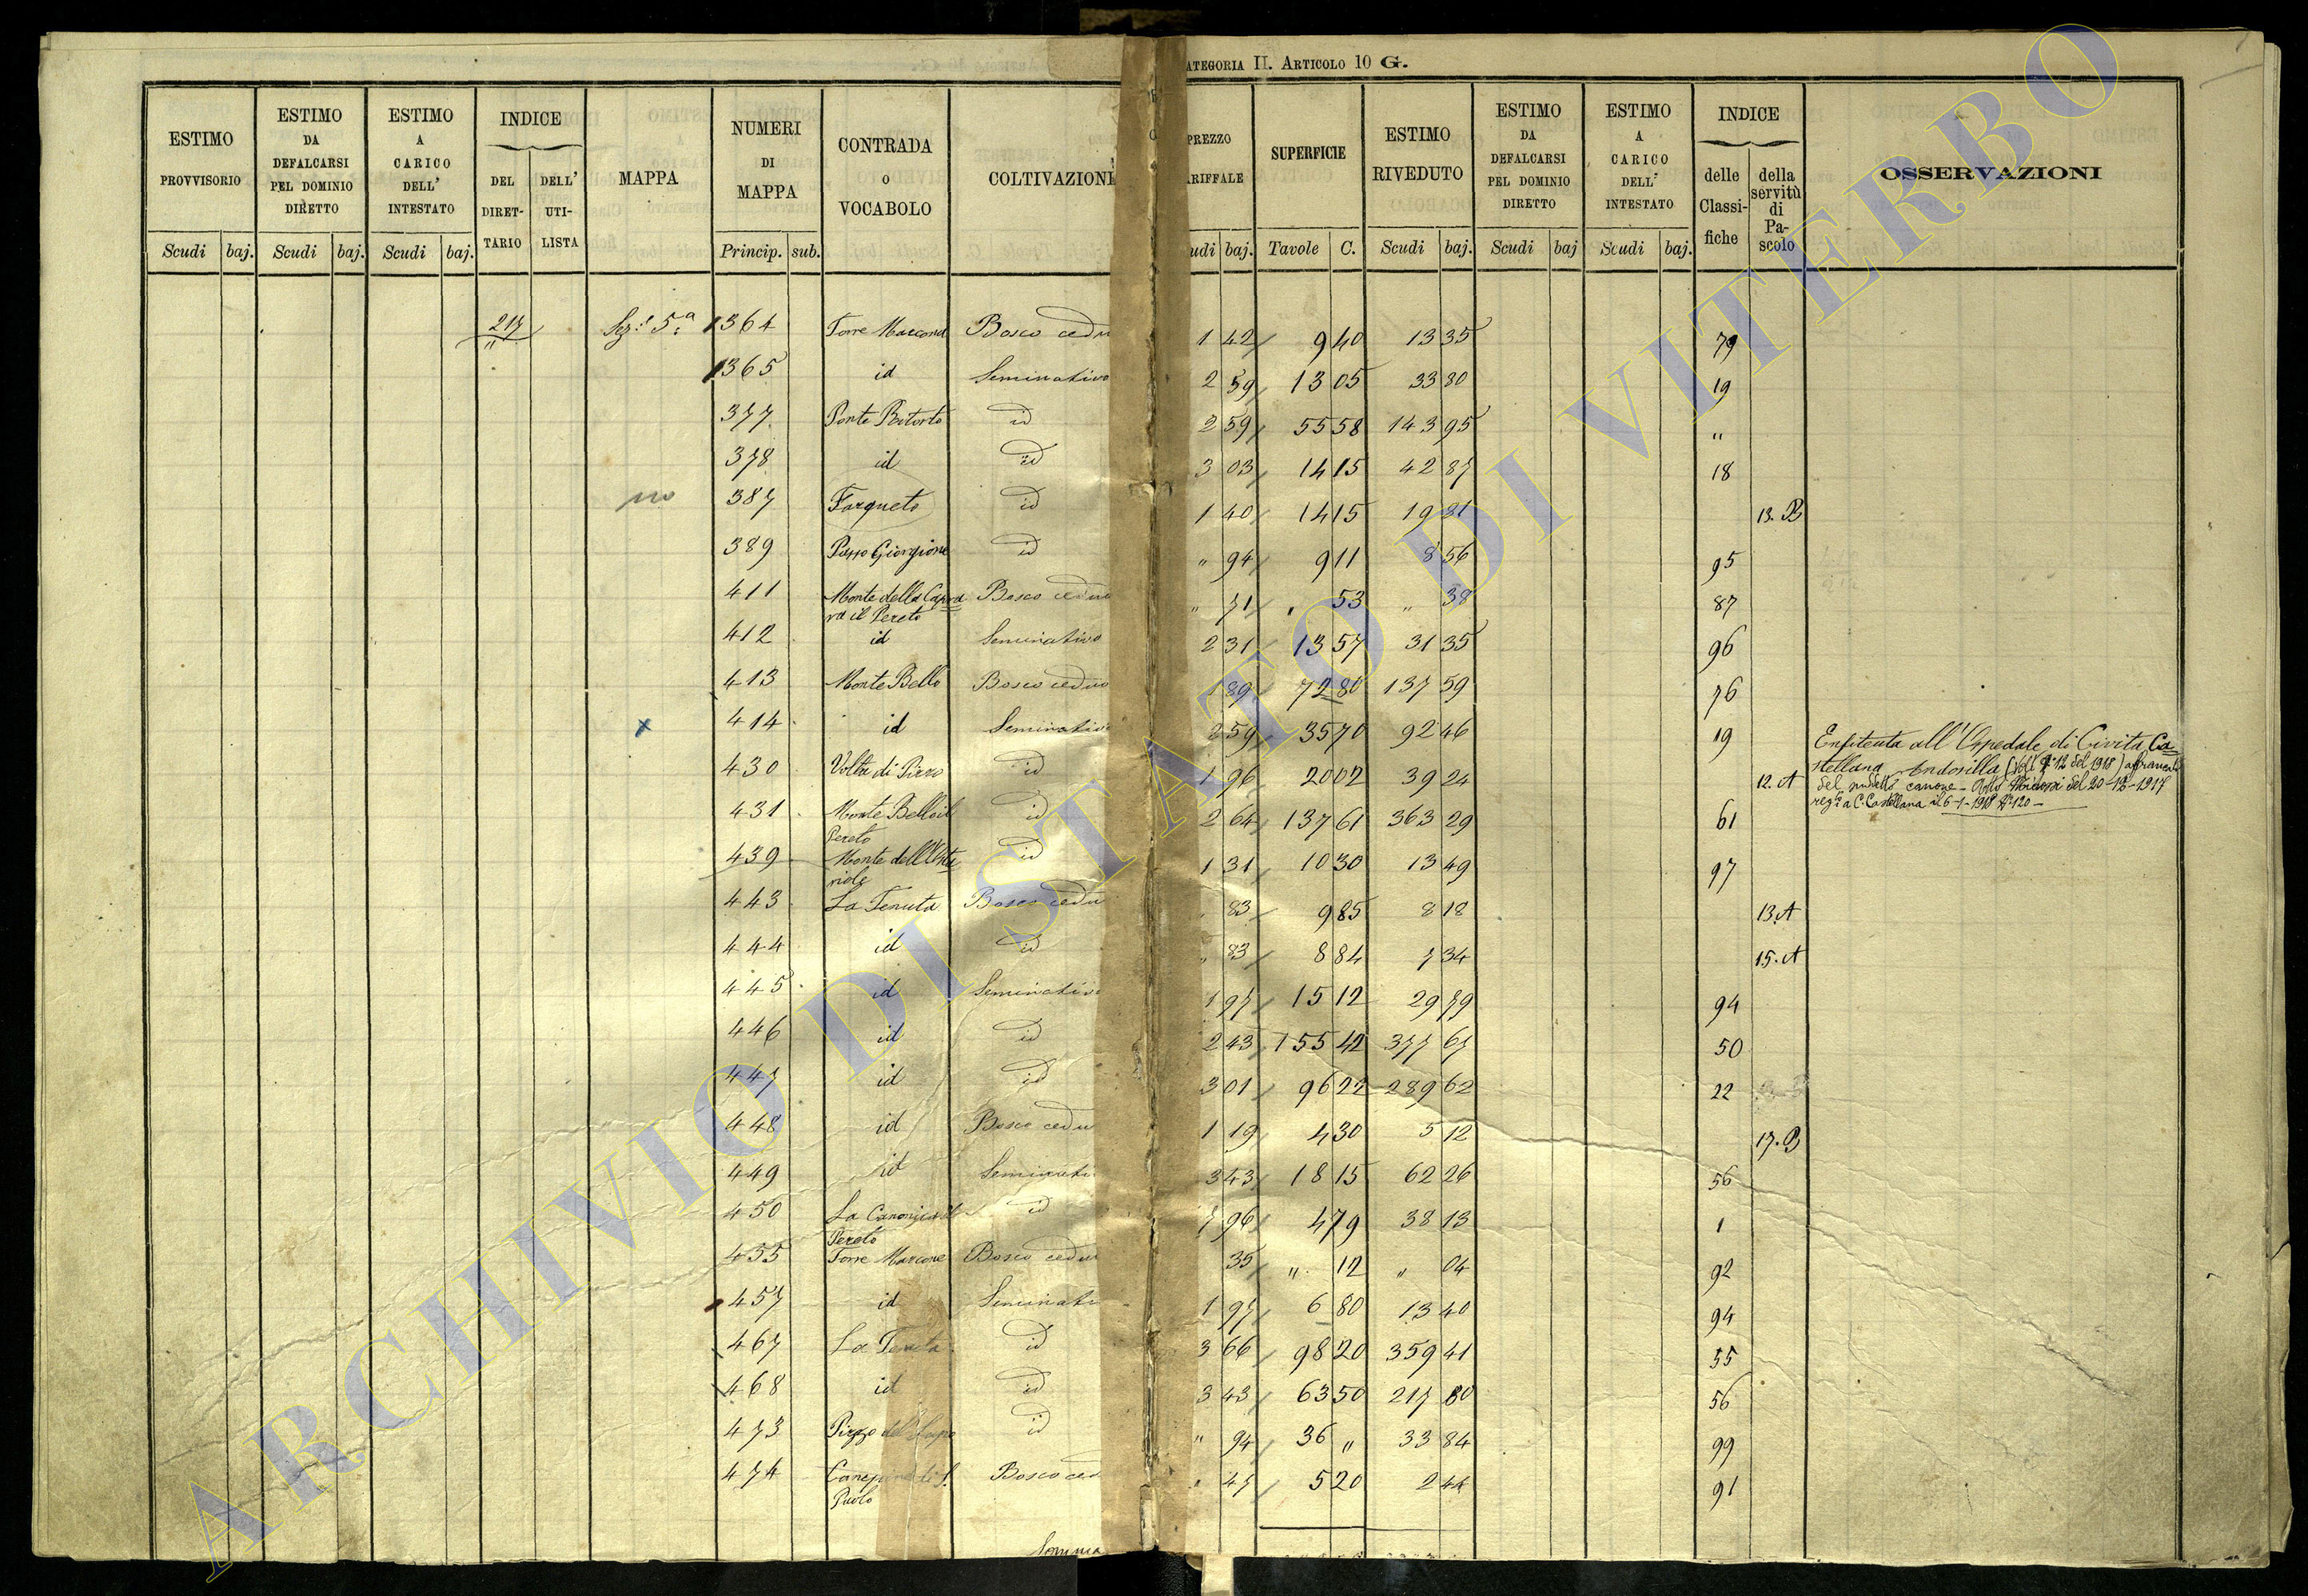 CATEGORIA II. ARTICOLO 10 G.
ESTIMO PROVVISORIO | ESTIMO DA DEFALCARSI PEL DOMINIO DIRETTO | ESTIMO A CARICO DELL' INTESTATO | INDICE DEL DIRETTARIO DELL' UTILISTA | MAPPA | NUMERI DI MAPPA | CONTRADA O VOCABOLO | COLTIVAZIONE | PREZZO TARIFFALE | SUPERFICIE | ESTIMO RIVEDUTO | ESTIMO DA DEFALCARSI PEL DOMINIO DIRETTO | ESTIMO A CARICO DELL' INTESTATO | INDICE delle Classifiche della servitù di Pascolo | OSSERVAZIONI
Scudi baj. Scudi baj. Scudi baj. Princip. sub. udi baj. Tavole C. Scudi baj. Scudi baj Scudi baj.
217 Sez.e 5a 1364 Torre Marcone Bosco cedu 1 42 9 40 13 35 79
1365 id Seminativo 2 59 13 05 33 80 19
377 Ponte Ritorto id 2 59 55 58 143 95 "
378 id id 3 03 14 15 42 87 18
no 387 Farqueto id 1 40 14 15 19 81 13. B
389 Passo Giorgione id " 94 9 11 8 56 95
411 Monte della Capra Bosco ceduo " 71 53 " 38 87
il Pereto
412 id Seminativo 2 31 13 57 31 35 96
413 Monte Bello Bosco ceduo 1 89 72 80 137 59 76
x 414 id Seminativo 2 59 35 70 92 46 19
430 Volta di id 1 96 20 02 39 24 12. A
Enfiteuta all'Ospedale di Civita Ca
stellana Andosilla
del canone del 20-12-1917
a C. Castellana il 6-1-1918 N° 120
431 Monte Bello il id 2 64 137 61 363 29 61
Pereto
439 Monte dell' id 1 31 10 30 13 49 97
443 La Tenuta Bosco cedu 83 9 85 8 18 13. A
444 id id " 83 8 84 7 34 15. A
445 id Seminativo 1 97 15 12 29 79 94
446 id id 2 43 155 42 377 67 50
447 id id 3 01 96 22 289 62 22
448 id Bosco cedu 1 19 4 30 5 12 17. B
449 id Seminati 3 43 18 15 62 26 56
450 La id 7 96 4 79 38 13 1
Pereto
455 Torre Marcone Bosco cedu 35 " 12 " 04 92
457 id Seminati 1 97 6 80 13 40 94
467 La Tenuta id 3 66 98 20 359 41 55
468 id id 3 43 63 50 217 80 56
473 Pizzo del id " 94 36 " 33 84 99
474 Bosco ced 47 5 20 2 44 91
Paolo
Somma
ARCHIVIO DI STATO DI VITERBO